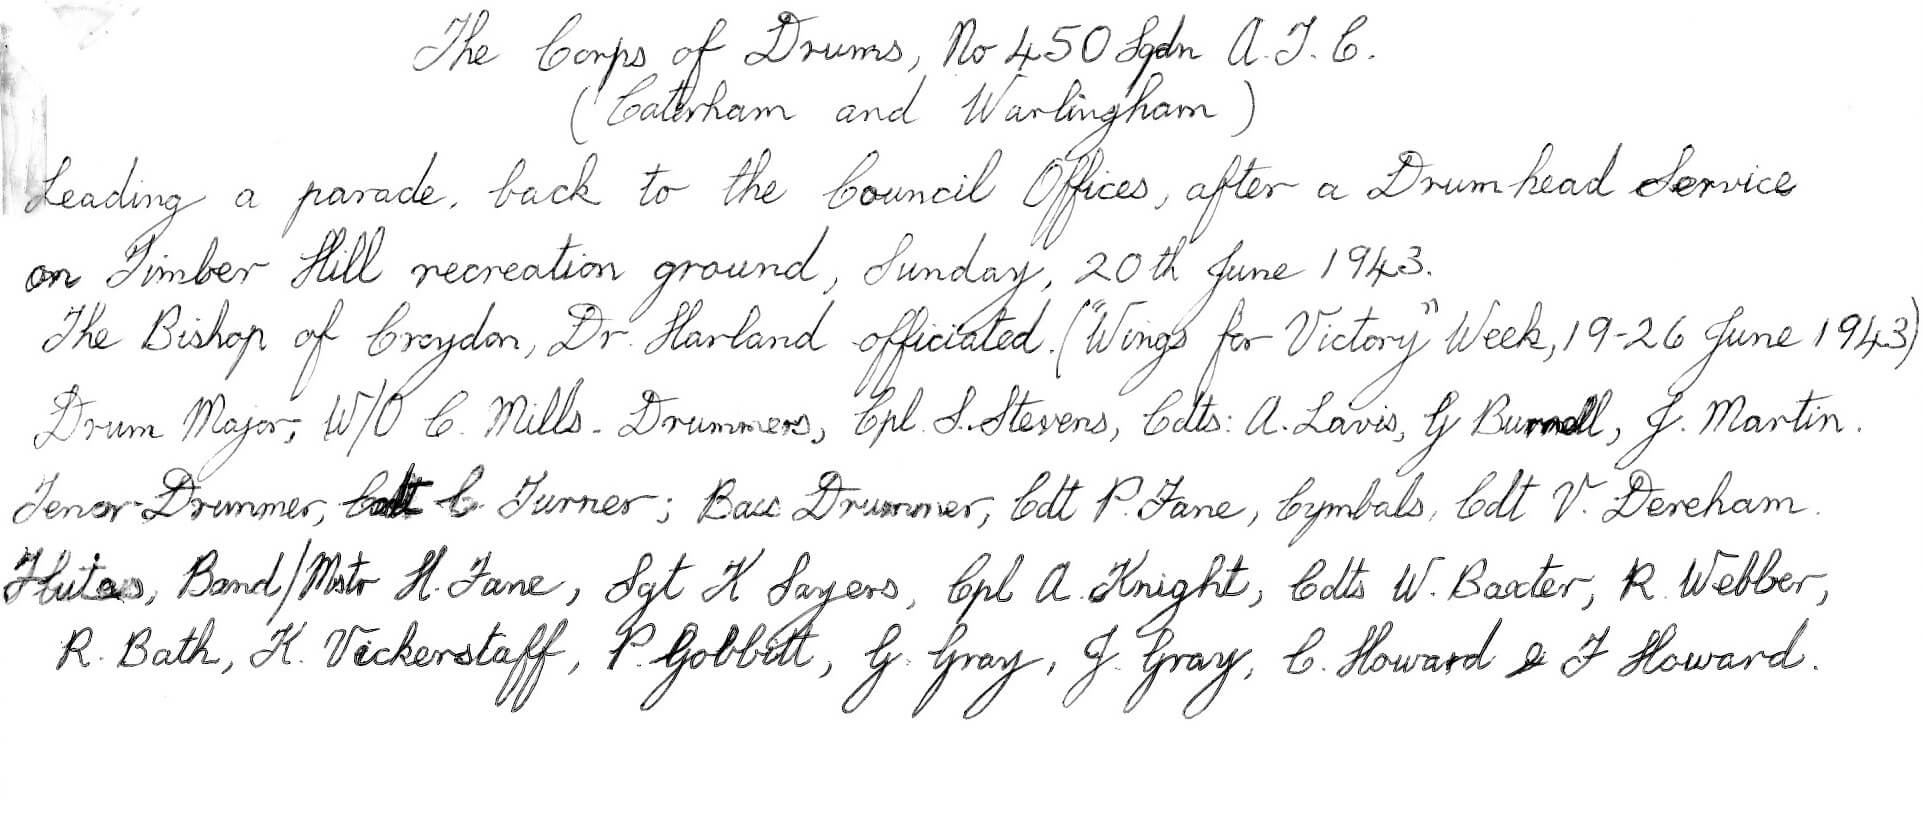 The Corps of Drums, No 450 Sqdn A.T.C.
(Caterham and Warlingham)
Leading a parade, back to the Council Offices, after a Drumhead Service
on Timber Hill recreation ground, Sunday, 20th June 1943.
The Bishop of Croydon, Dr. Harland officiated. ("Wings for Victory" Week, 19-26 June 1943)
Drum Major, W/O C. Mills. Drummers, Cpl. S. Stevens, Cdts: A. Lavis, G Burnell, J. Martin.
Tenor Drummer, Cdt C. Turner; Bass Drummer, Cdt P. Fane, Cymbals, Cdt V. Dereham.
Flutes, Band/Mstr H. Fane, Sgt K Sayers, Cpl A. Knight, Cdts W. Baxter, R. Webber,
R. Bath, K. Vickerstaff, P. Gobbitt, G. Gray, J. Gray, C. Howard & F Howard.